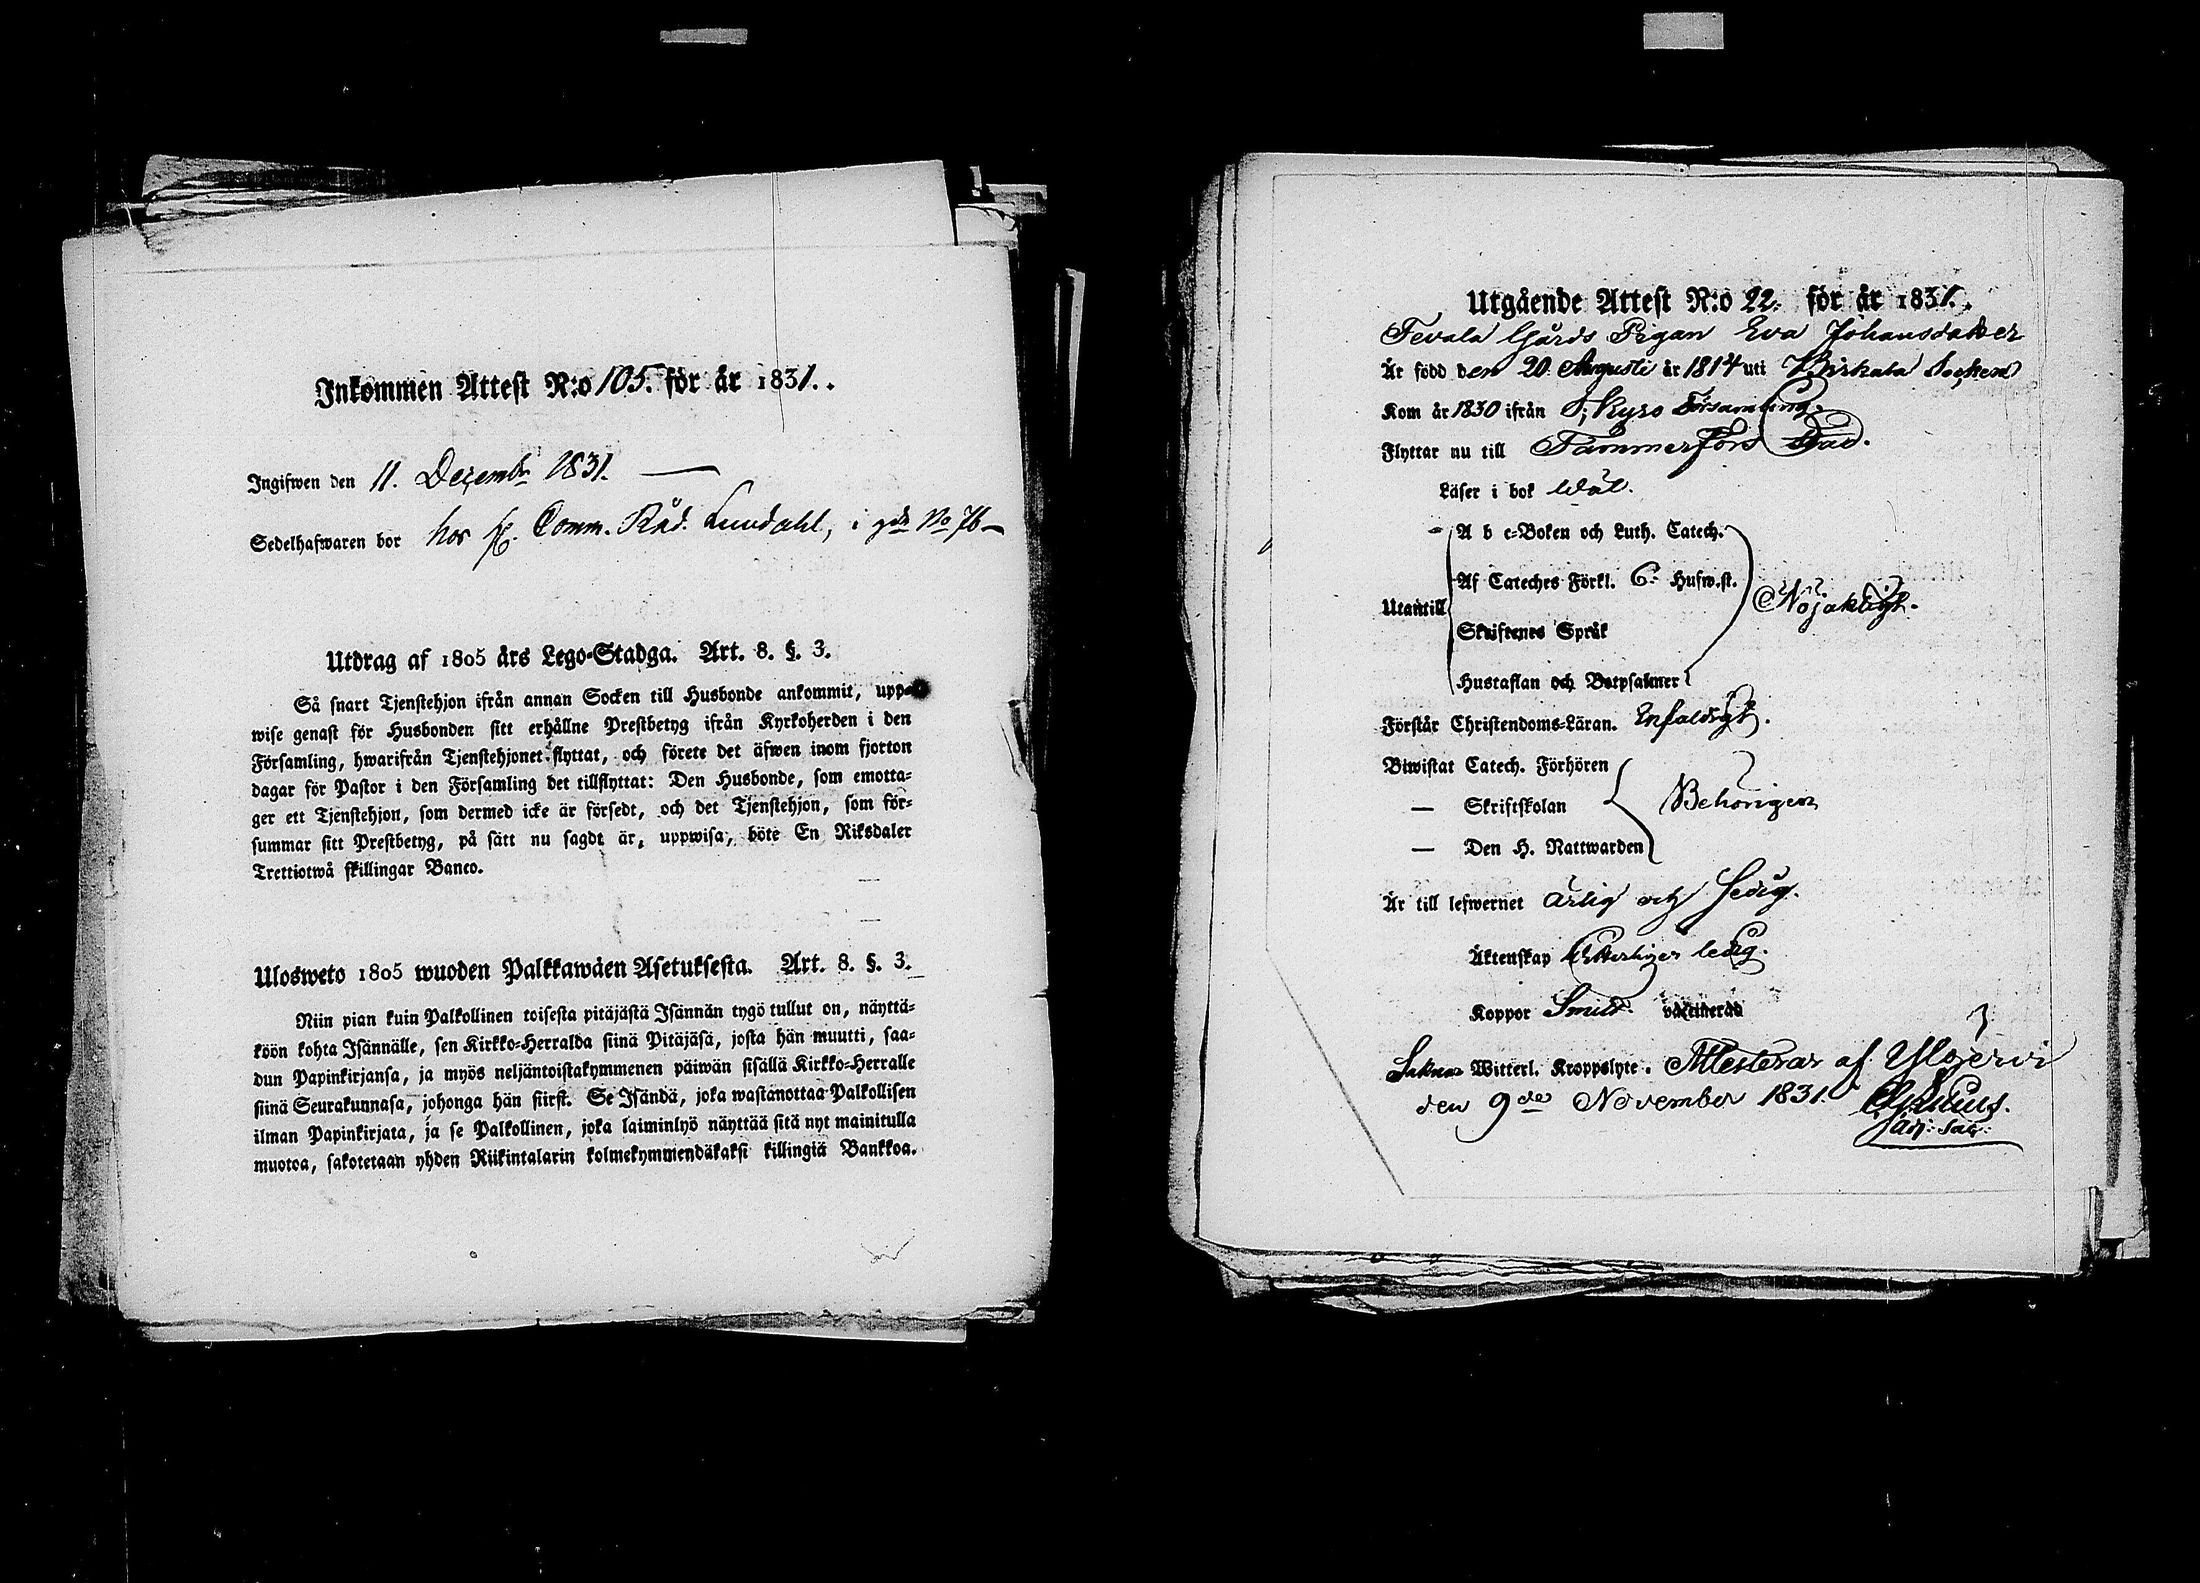 Inkommen Attest N:o 105. för år 1831.
Ingifwen den 11. Decemb. 1831.
Sedelhafwaren bor hos Comm. Råd. Lundahl, i gdn No 76
Utdrag af 1805 års Lego-Stadga. Art. 8. §. 3.
Så snart Tjenstehjon ifrån annan Socken till Husbonde ankommit, upp-
wise genast för Husbonden sitt erhållne Prestbetyg ifrån Kyrkoherden i den
Församling, hwarifrån Tjenstehjonet flyttat, och förete det äfwen inom fjorton
dagar för Pastor i den Församling det tillflyttat: Den Husbonde, som emotta-
ger ett Tjenstehjon, som dermed icke är försedt, och det Tjenstehjon, som för-
summar sitt Prestbetyg, på sätt nu sagdt är, uppwisa, böte En Riksdaler
Trettiotwå skillingar Banco.
Ulosweto 1805 wuoden Palkkawäen Asetuksesta. Art. 8. §. 3.
Niin pian kuin Palkollinen toisesta pitäjästä Isännän tygö tullut on, näyttä-
köön kohta Isännälle, sen Kirkko-Herralda siinä Pitäjäsä, josta hän muutti, saa-
dun Papinkirjansa, ja myös neljäntoistakymmenen päiwän sisällä Kirkko-Herralle
siinä Seurakunnasa, johonga hän siirst. Se Isändä, joka wastanottaa Palkollisen
ilman Papinkirjata, ja se Palkollinen, joka laiminlyö näyttää sitä nyt mainitulla
muotoa, sakotetaan yhden Riikintalarin kolmekymmendäkaksi killingiä Bankkoa.
Utgående Attest N:o 22. för år 1831.
Tevala Gårds Pigan Eva Johansdotter
Är född den 20 Augusti år 1814 uti Birkala Socken
Kom år 1830 ifrån T. Kyro Församling.
Flyttar nu till Tammerfors Stad.
Läser i bok Wäl.
A b c-Boken och Luth. Catech.
Af Cateches Förkl. 6. Husw.st.
Utantill
Nöjaktigt.
Skriftenes Språk
Hustaflan och Botpsalmer
Förstår Christendoms-Läran. Enfaldigt.
Biwistat Catech. Förhören
— Skriftskolan
Behörigen
— Den H. Nattwarden
Är till lefwernet ärlig och sedig.
Äktenskap Witterligen ledig.
Koppor vaccinerad
Saknar Witterl. Kroppslyte. Attesterar af Ylöjervi
den 9de November 1831.
Adj: Sac: